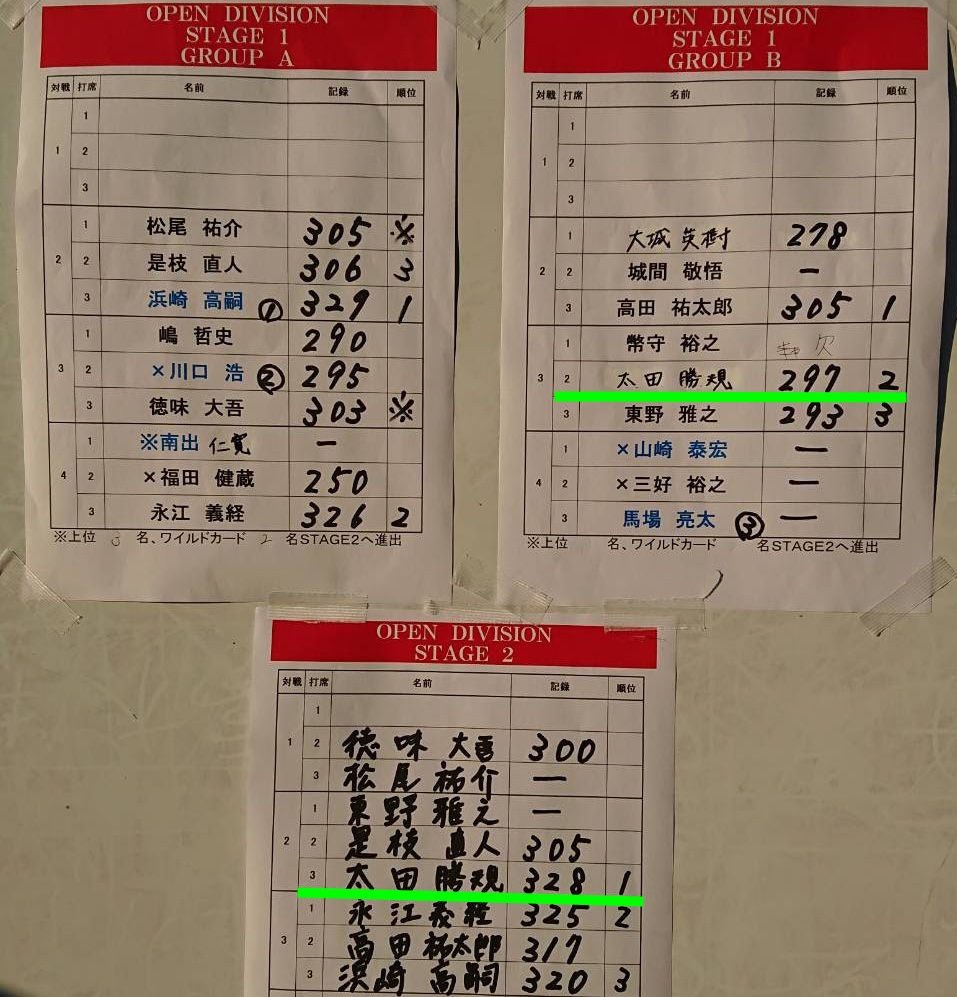 OPEN DIVISION
STAGE 1
GROUP A
対戦 打席 名前 記録 順位
1 1
2
3
2 1 松尾 祐介 305 ※
2 是枝 直人 306 3
3 浜崎 高嗣 ① 329 1
3 1 嶋 哲史 290
2 ×川口 浩 ② 295
3 徳味 大吾 303 ※
4 1 ※南出 仁寛 ー
2 ×福田 健蔵 250
3 永江 義経 326 2
※上位 3 名、ワイルドカード 2 名STAGE2へ進出
OPEN DIVISION
STAGE 1
GROUP B
対戦 打席 名前 記録 順位
1 1
2
3
2 1 大城 英樹 278
2 城間 敬悟 ー
3 高田 祐太郎 305 1
3 1 幣守 裕之 欠
2 太田 勝規 297 2
3 東野 雅之 293 3
4 1 ×山崎 泰宏 ー
2 ×三好 裕之 ー
3 馬場 亮太 ③ ー
※上位 名、ワイルドカード 名STAGE2へ進出
OPEN DIVISION
STAGE 2
対戦 打席 名前 記録 順位
1 1
2 徳味 大吾 300
3 松尾 祐介 ー
2 1 東野 雅之 ー
2 是枝 直人 305
3 太田 勝規 328 1
3 1 永江 義経 325 2
2 高田 祐太郎 317
3 浜崎 高嗣 320 3